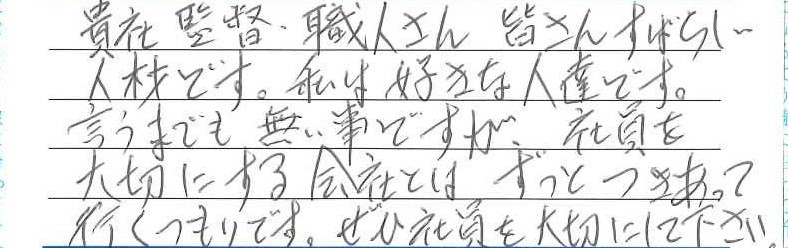 貴社 監督・職人さん 皆さんすばらしい
人材です。私は好きな人達です。
言うまでも無い事ですが、社員を
大切にする会社とは ずっとつきあって
行くつもりです。ぜひ社員を大切にして下さい。